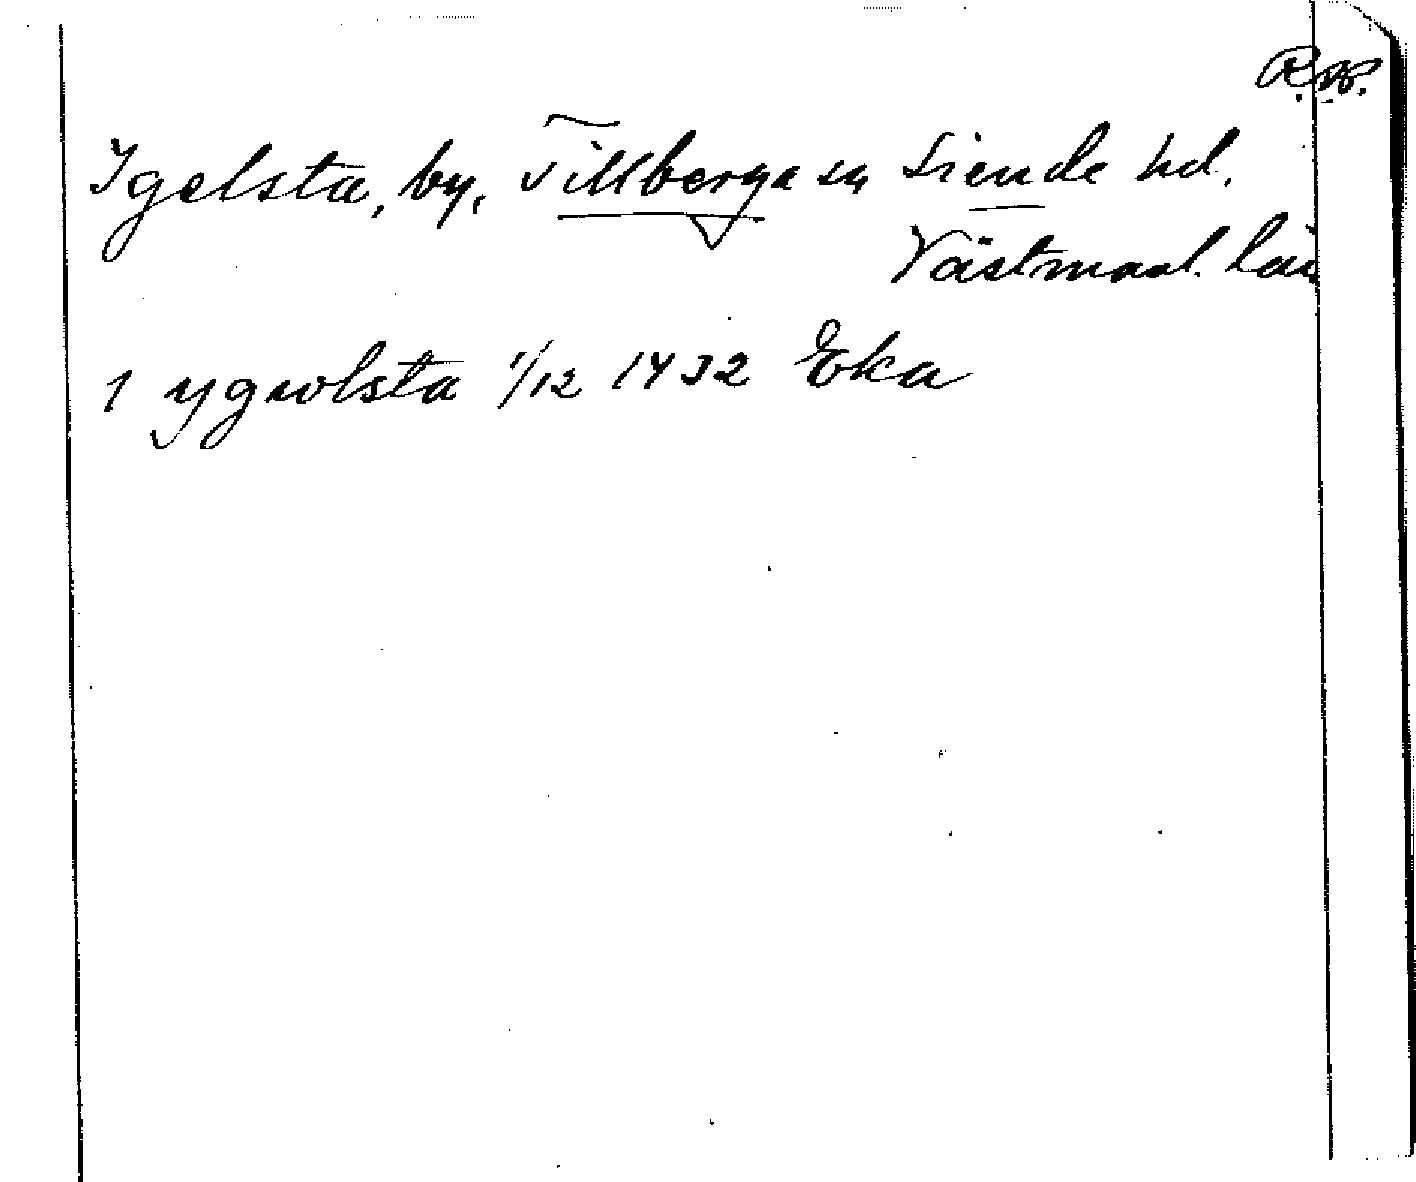 R.W.
Igelsta, by, Tillberga sn Siende hd.
Västmanl. län
1 ygwlsta 1/12 1432 Eka